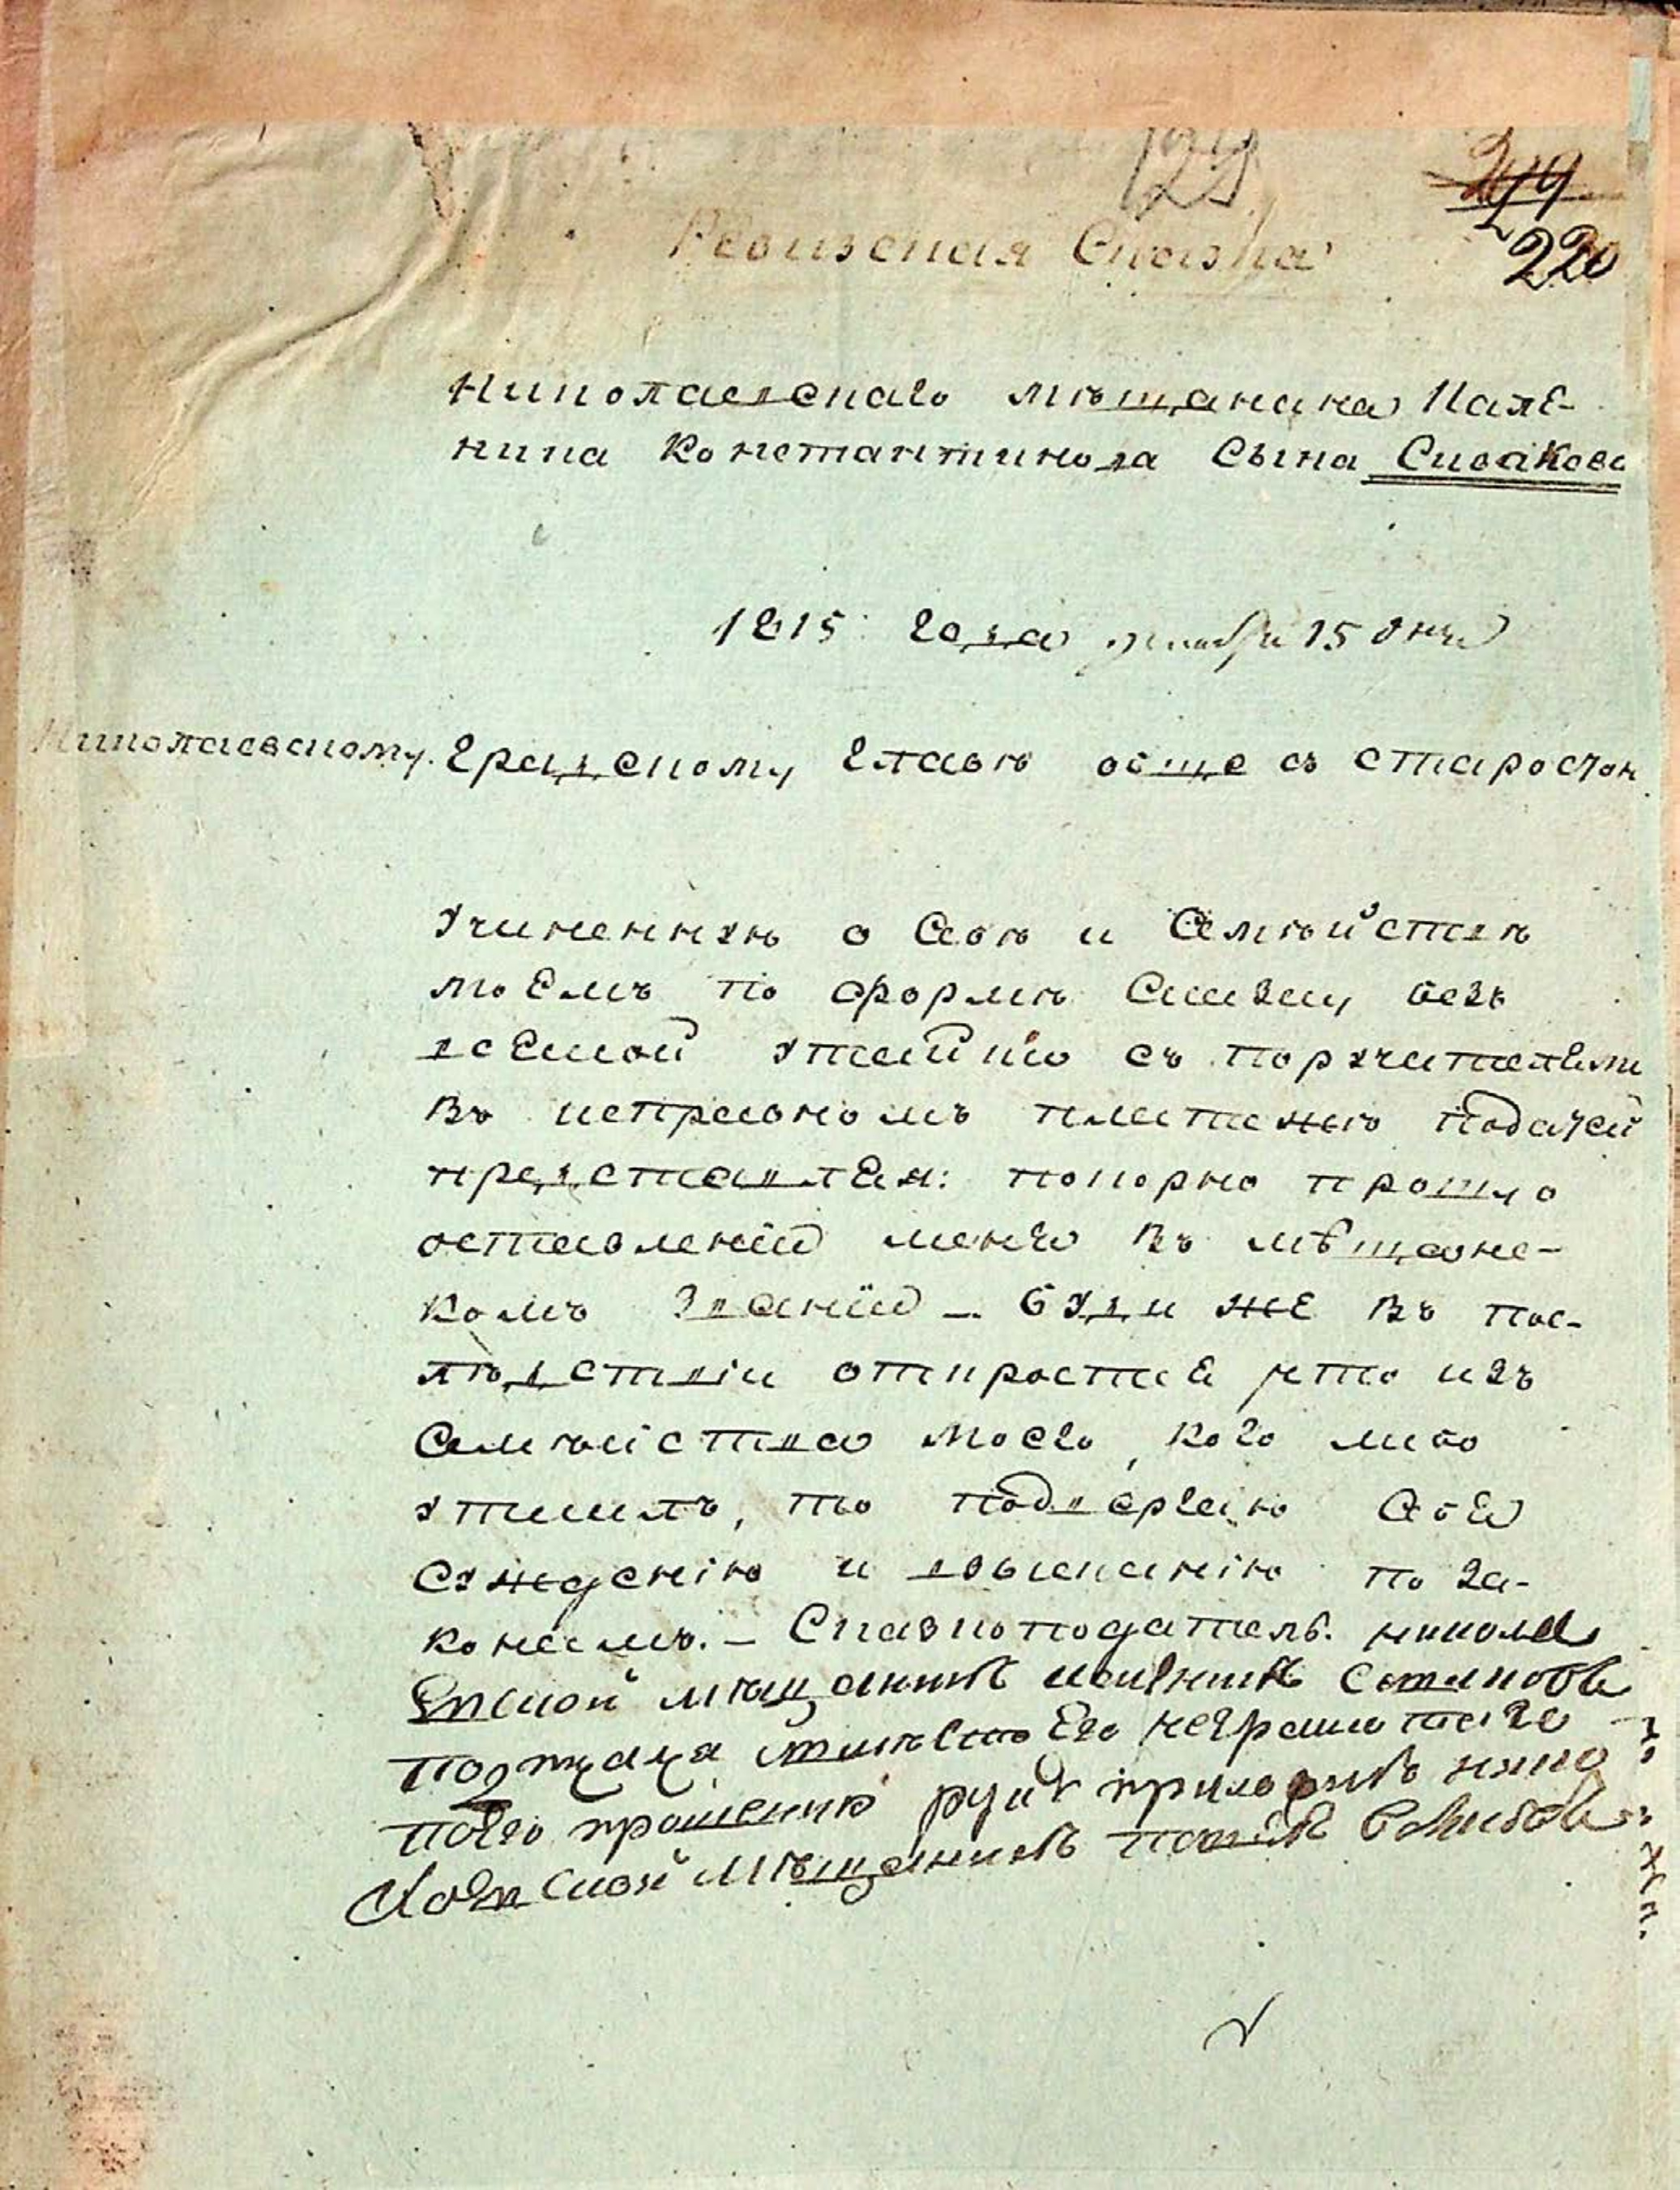 129
279
220
Ревизская Сказка
Николаевскаго мѣщанина Кале-
ника Константинова Сына Сивакова
1815: года декабря 15 дня
Николаевскому. Градскому Главѣ обще съ старостою
Учиненную о Себѣ и Семѣйствѣ
моемъ по формѣ Сказку безъ
всякой утайки съ поручителями
Въ исправномъ платежѣ податей
представляя: покорно прошу
оставленія меня Въ мѣщанс-
комъ званіи — буди же Въ пос-
лѣдствіи откроется что изъ
Семѣйства моего, кого либо
утаилъ, то подвергаю Себя
сужденію и взысканію по за-
конамъ. — Сказкоподатель. никола
Евской мѣщанинъ
Его неграмотнаго
поего прошению руку приложилъ нико
Лаевской мѣщанинъ